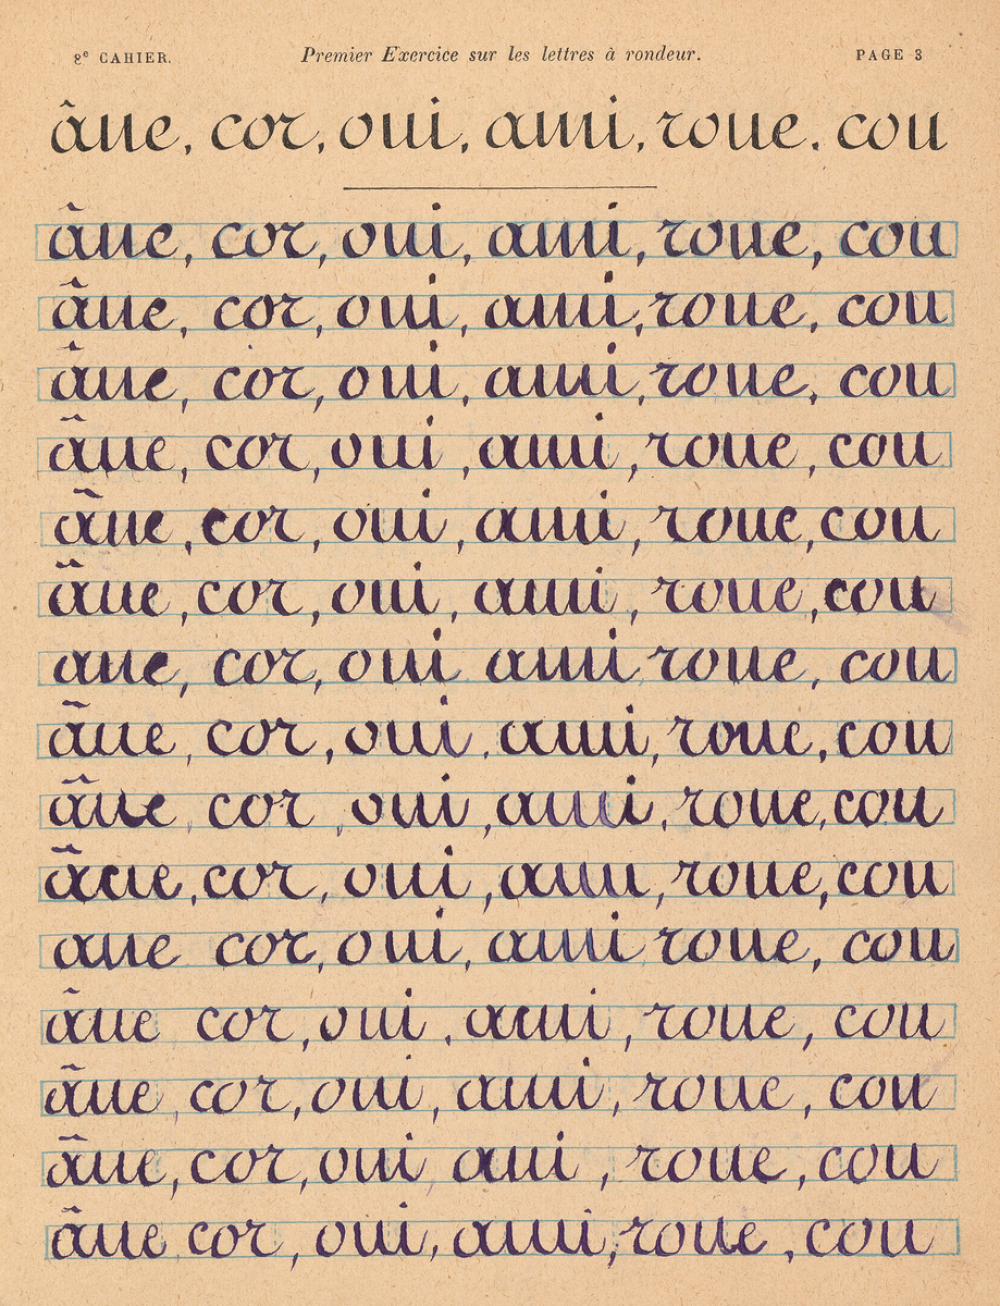 2e CAHIER. Premier Exercice sur les lettres à rondeur. PAGE 3
âne, cor, oui, ami, roue. cou
âne, cor, oui, ami, roue, cou
âne, cor, oui, ami, roue, cou
âne, cor, oui, ami, roue, cou
âne, cor, oui, ami, roue, cou
âne, cor, oui, ami, roue, cou
âne, cor, oui, ami, roue, cou
ane, cor, oui ami roue, cou
âne, cor, oui, ami, roue, cou
âne, cor, oui, ami, roue, cou
âne, cor, oui, ami, roue, cou
ane cor, oui, ami roue, cou
âne cor, oui, ami, roue, cou
âne, cor, oui, ami, roue, cou
âne, cor, oui ami, roue, cou
âne cor, oui, ami, roue, cou